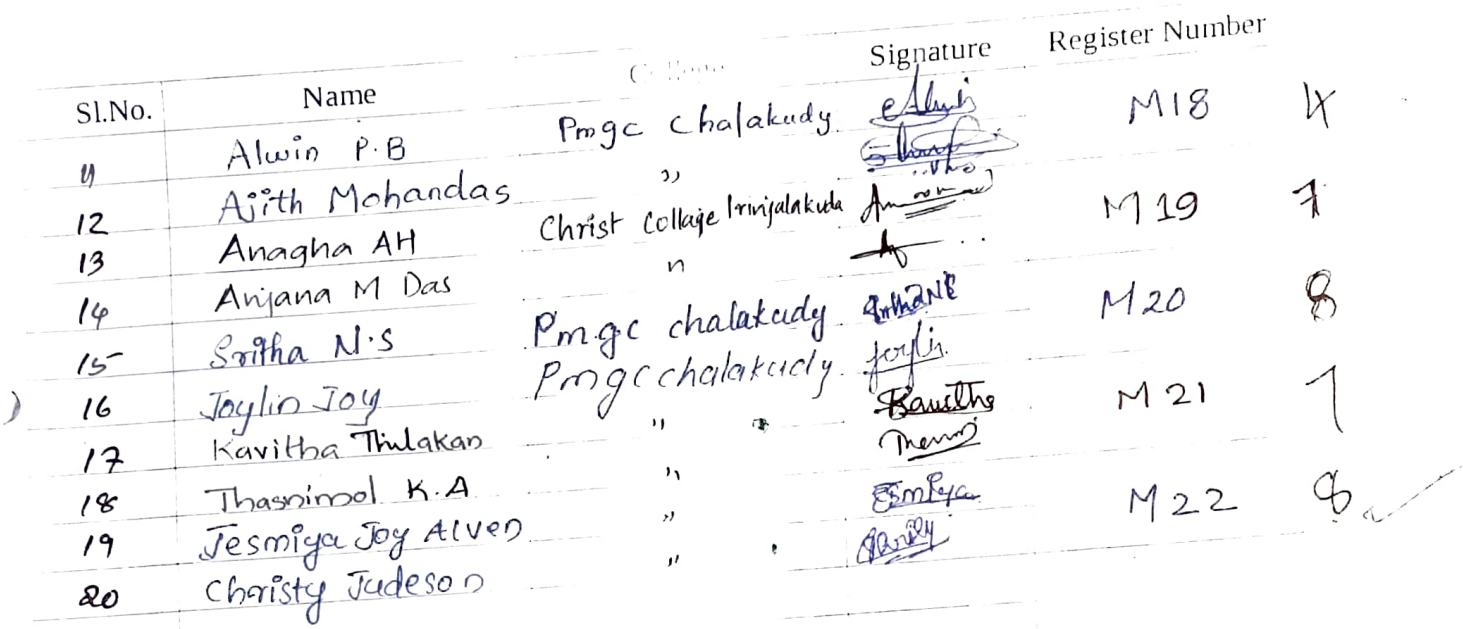 Sl.No. Name College Signature Register Number
11 Alwin P.B Pmgc Chalakudy M18 4
12 Ajith Mohandas ,,
13 Anagha AH Christ Collage Irinjalakuda M19 7
14 Anjana M Das n
15 Sritha N.S Pm.gc chalakudy M20 8
16 Joylin Joy Pmgc chalakudy. Joylin.
17 Kavitha Thilakan ,, Kavitha M21 7
18 Thasnimol K.A ,,
19 Jesmiya Joy Alven ,, M22 8
20 Christy Judeson ,,